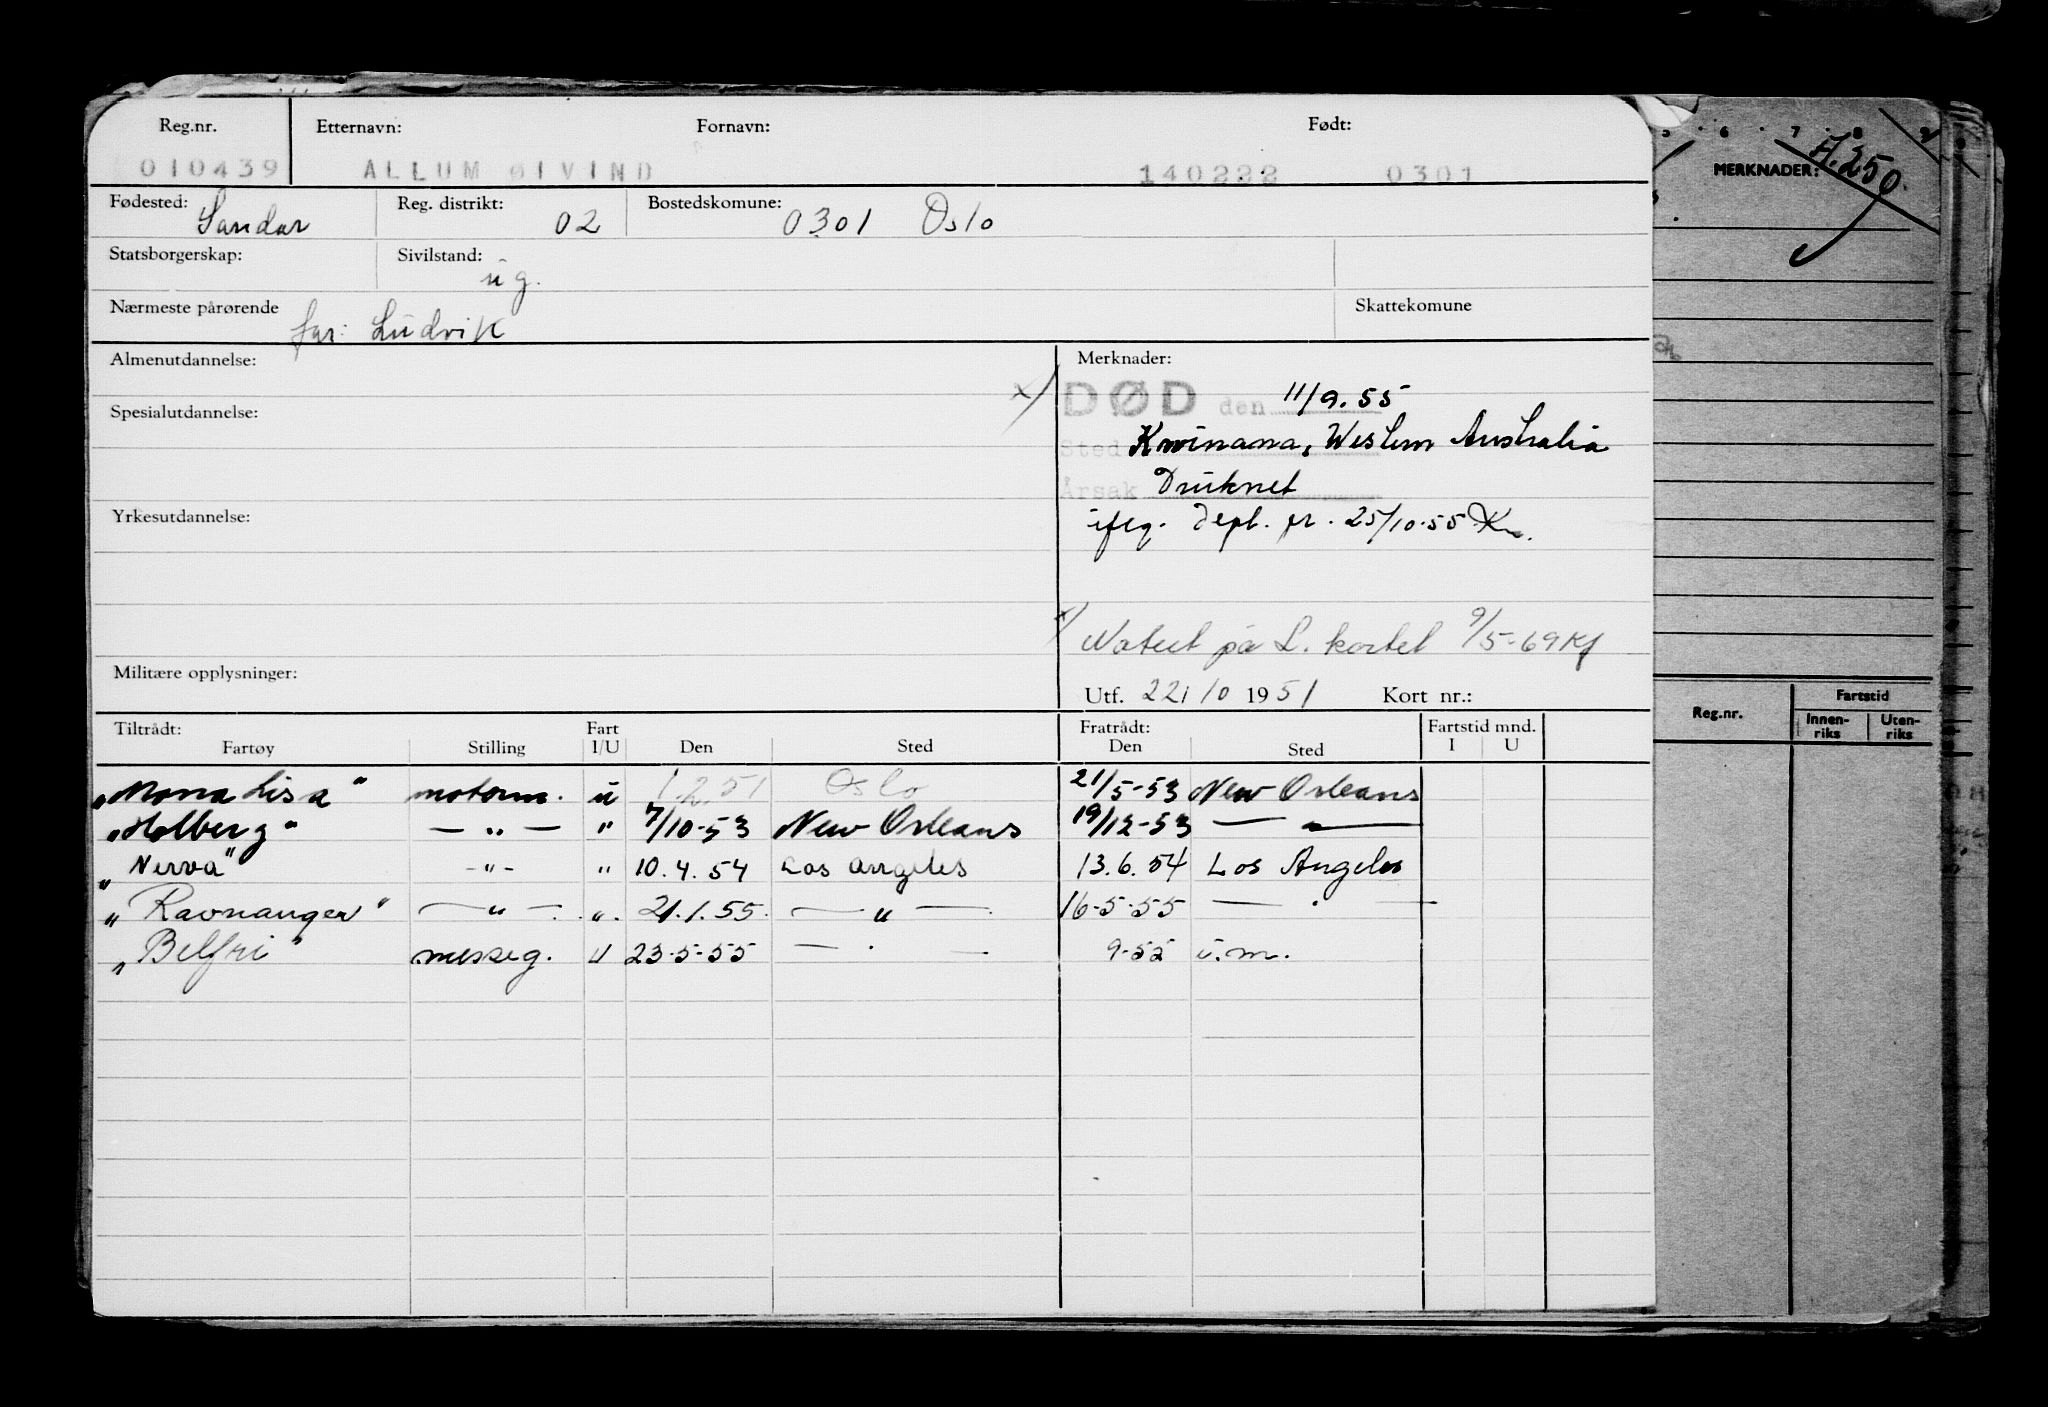 Reg.nr. Etternavn: Fornavn: Født:
010439 ALLUM ØIVIND 140222 0301
Fødested: Sandar Reg. distrikt: 02 Bostedskomune: 0301 Oslo
Statsborgerskap: Sivilstand: ug.
Nærmeste pårørende far: Ludvik Skattekomune
Almenutdannelse: Merknader:
x) DØD den 11/9.55
Spesialutdannelse:
Sted Kwinana, Western Australia
Årsak Druknet
Yrkesutdannelse:
iflg. Dept. pr. 25/10-55
x) Notert på L. kortet 9/5-69
Militære opplysninger:
Utf. 22/10 1951 Kort nr.:
Tiltrådt: Fart Fratrådt: Fartstid mnd.
Fartøy Stilling I/U Den Sted Den Sted I U
"Mona Lisa" motorm. u 1.2.51 Oslo 21/5-53 New Orleans
"Holberg" — " — " 7/10-53 New Orleans 19/12-53 — " —
"Nerva" - " - " 10.4.54 Los Angeles 13.6.54 Los Angeles
"Ravnanger" — " — " 21.1.55 — " — 16-5-55 — " —
"Belfri" messeg. U 23-5-55 — " — 9-55 u.m.
5 6 7 8 9
MERKNADER: A.250.
Reg.nr. Fartstid
Innen-riks Uten-riks